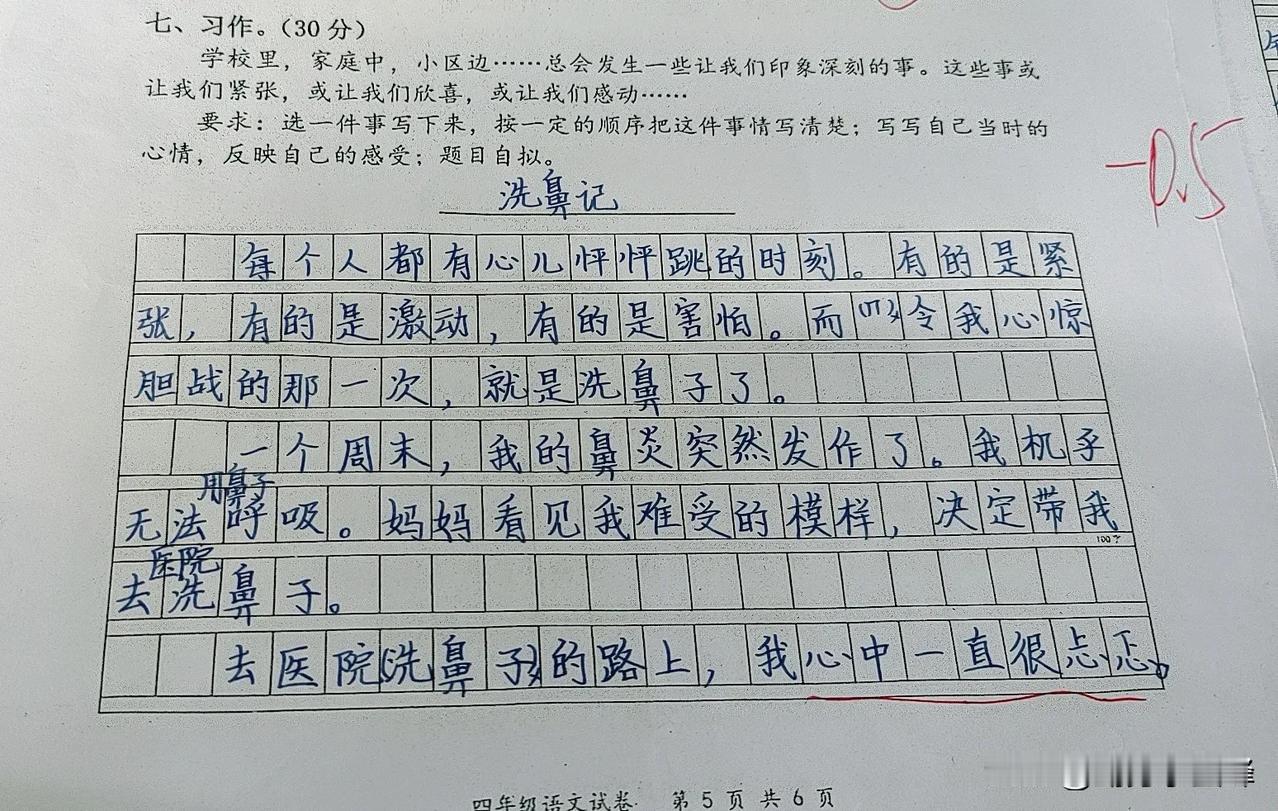 七、习作。（30分）
学校里，家庭中，小区边……总会发生一些让我们印象深刻的事。这些事或
让我们紧张，或让我们欣喜，或让我们感动……
要求：选一件事写下来，按一定的顺序把这件事情写清楚；写写自己当时的
心情，反映自己的感受；题目自拟。
-0.5
洗鼻记
每个人都有心儿怦怦跳的时刻。有的是紧
张，有的是激动，有的是害怕。而令我心惊
胆战的那一次，就是洗鼻子了。
一个周末，我的鼻炎突然发作了。我机乎
用鼻子
无法呼吸。妈妈看见我难受的模样，决定带我
100字
医院
去洗鼻子。
去医院洗鼻子的路上，我心中一直很忐忑。
四年级语文试卷 第5页共6页